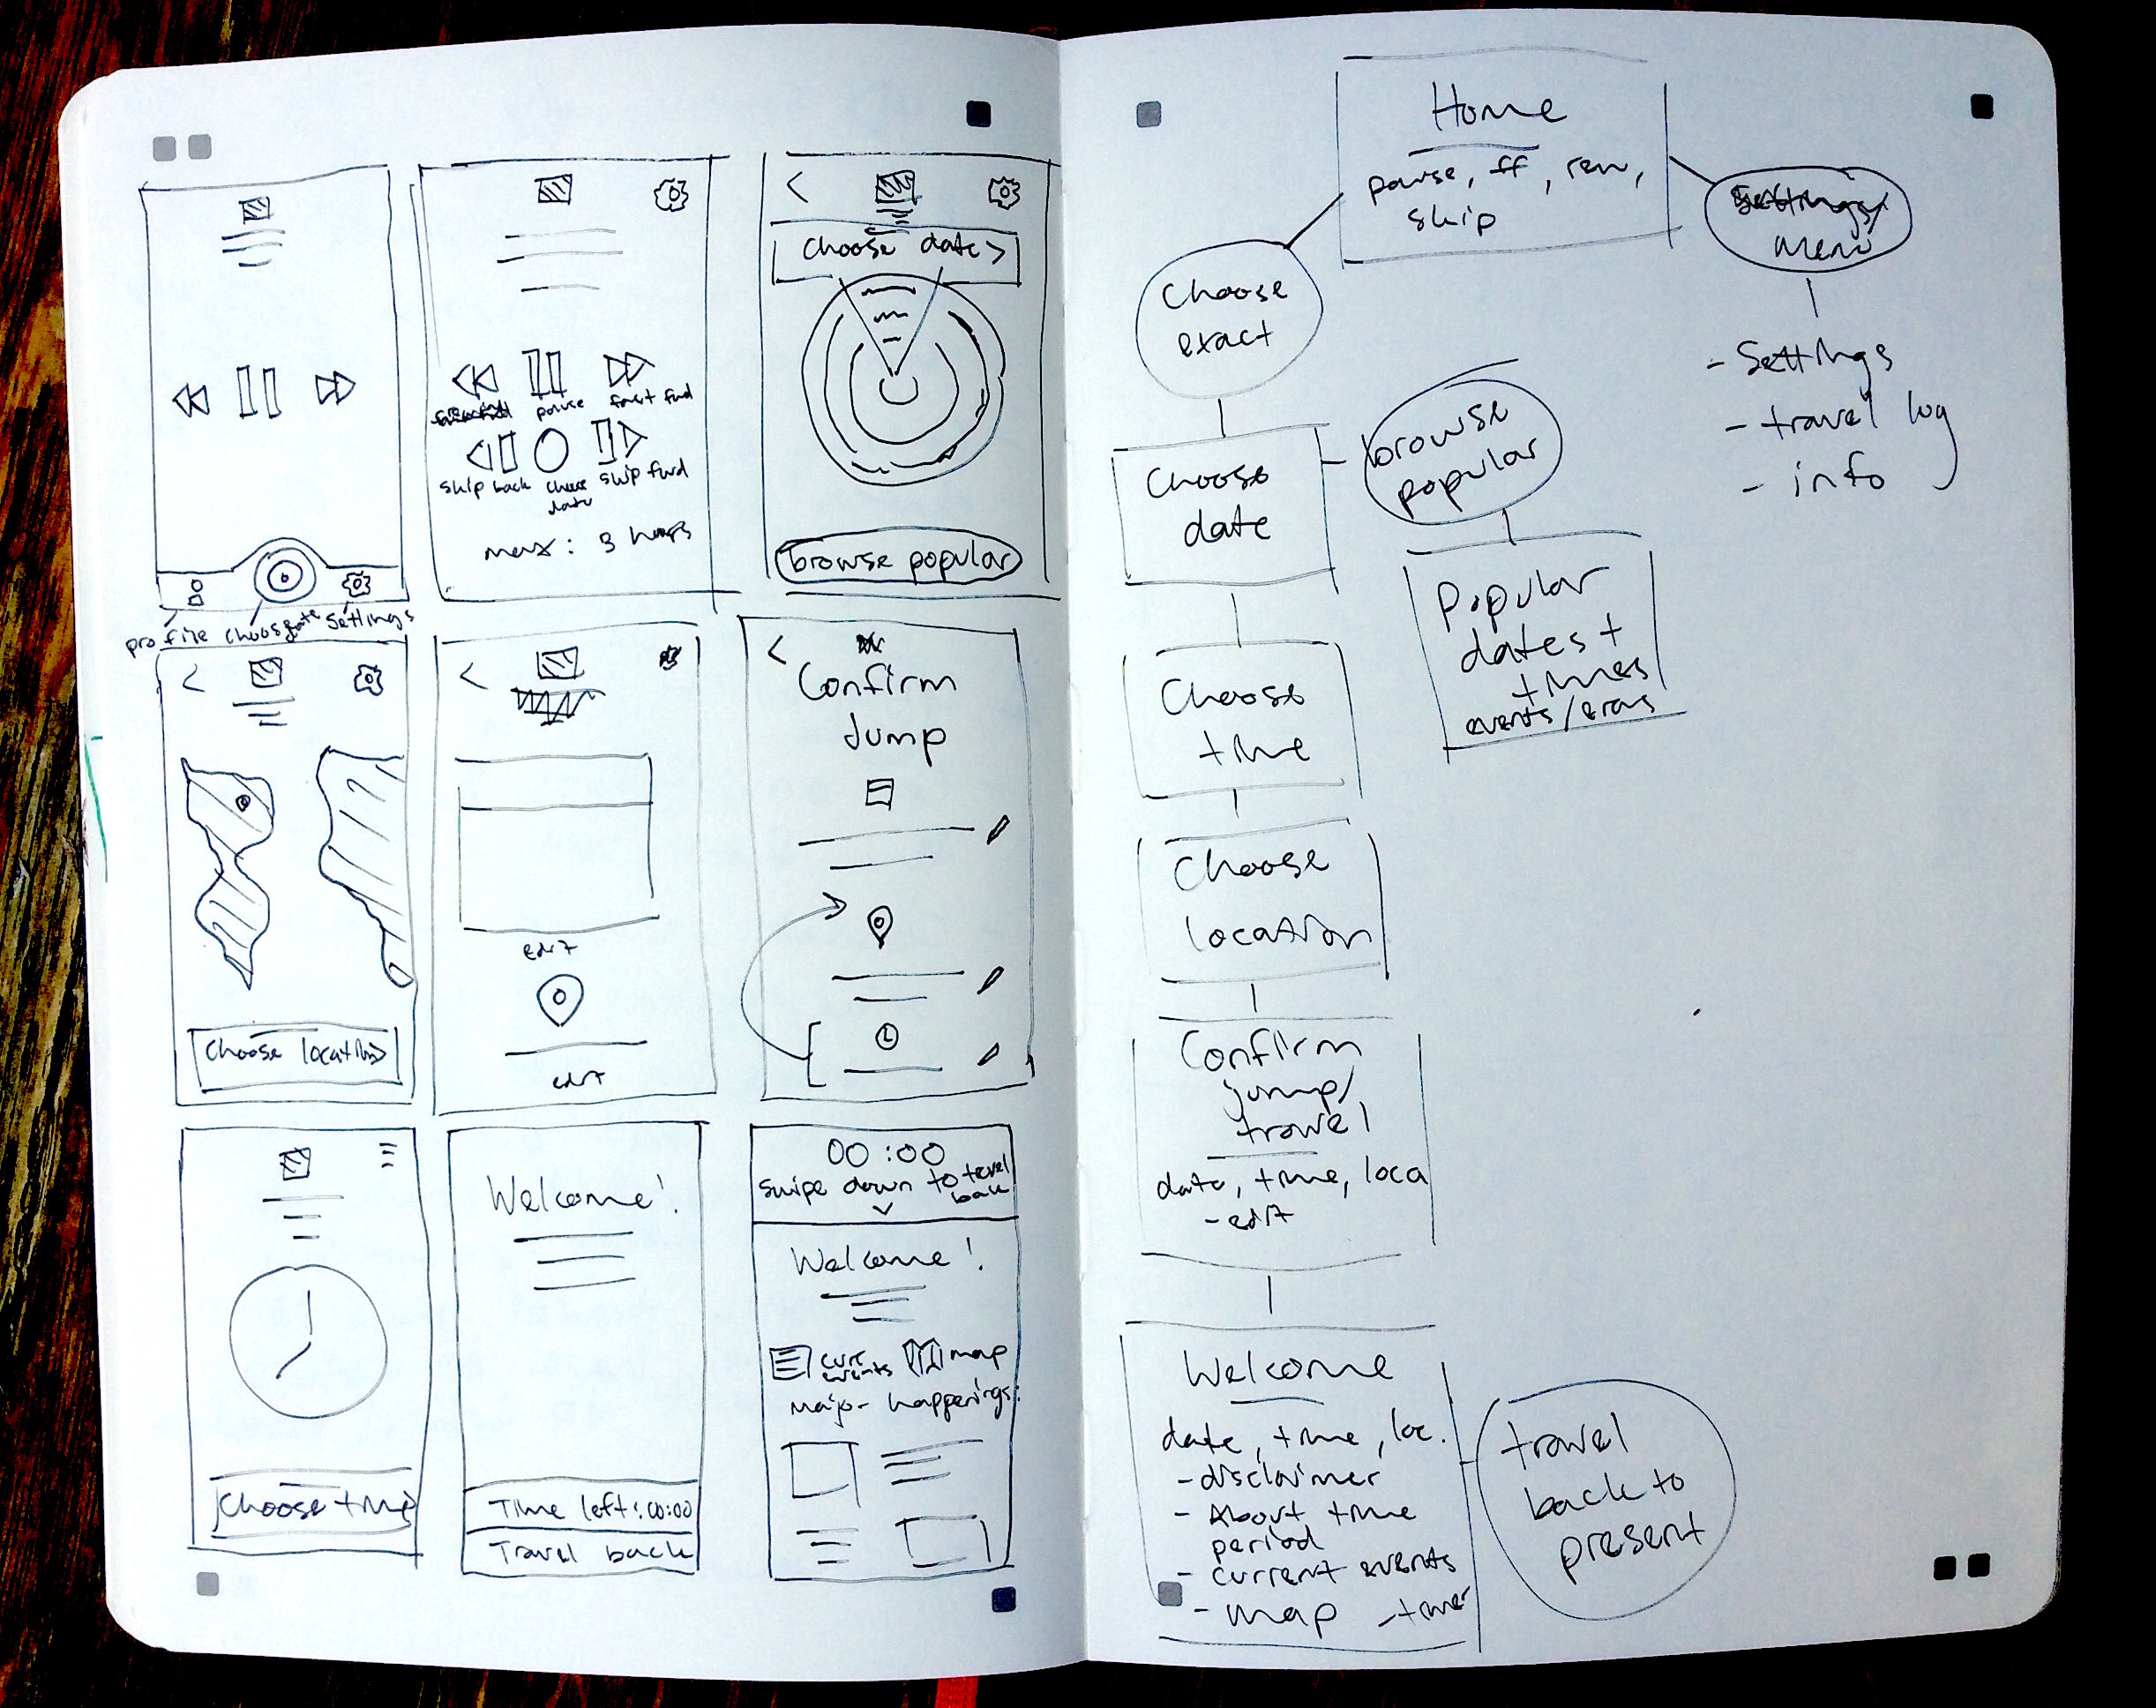 profile
choose
date
settings
pause
fast fwd
skip back
choose
date
skip fwd
max: 3 hours
choose date >
browse popular
Choose location >
edit
edit
Confirm
Jump
Choose time
Welcome!
Time left: 00:00
Travel back
00:00
Swipe down to travel
back
Welcome!
curr
events
map
major happenings:
Home
pause, ff, rew,
skip
Settings/
menu
- Settings
- travel log
- info
Choose
exact
Choose
date
browse
popular
Popular
dates +
times
events/eras
Choose
time
Choose
location
Confirm
jump/
travel
date, time, loca
- edit
Welcome
date, time, loc.
- disclaimer
- About time
period
- current events
- map - timer
travel
back to
present